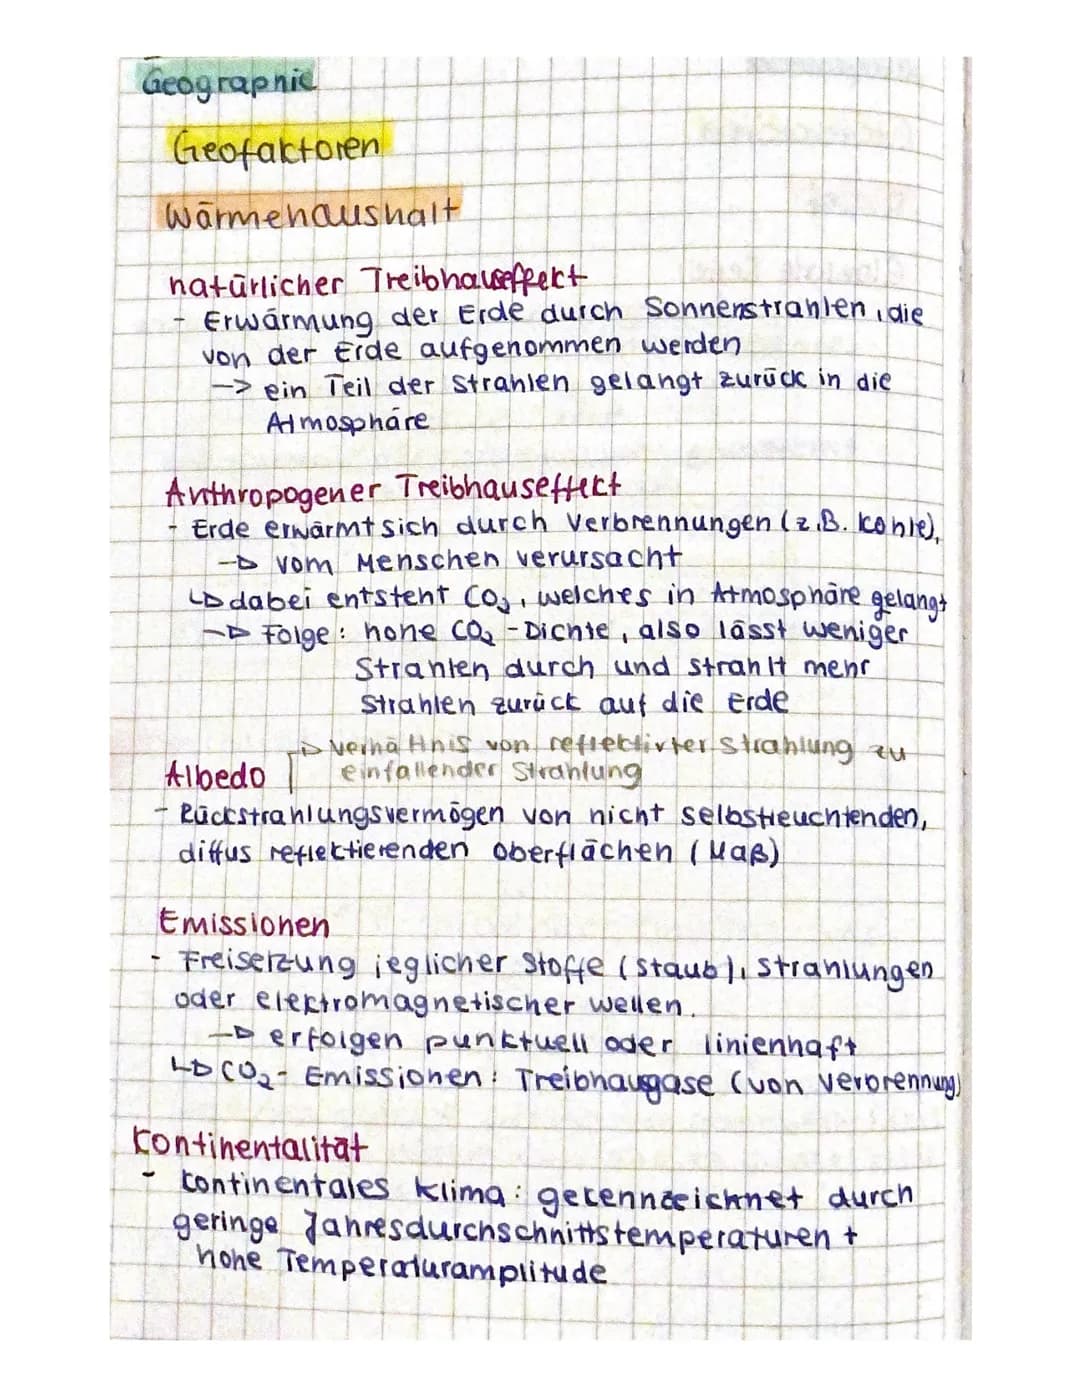 Geographie
Geofaktoren
Wärmehaushalt
natürlicher Treibhauseffekt
- Erwärmung der Erde durch Sonnenstrahlen, die
von der Erde aufgenommen werden
-> ein Teil der Strahlen gelangt zurück in die
Atmosphäre
Anthropogener Treibhauseffekt
- Erde erwärmt sich durch Verbrennungen (z.B. Kohle),
-> vom Menschen verursacht
↳ dabei entsteht CO₂, welches in Atmosphäre gelangt
-> Folge: hohe CO₂-Dichte, also lässt weniger
Strahlen durch und strahlt mehr
Strahlen zurück auf die Erde
-> Verhältnis von reflektirter Strahlung zu
einfallender Strahlung
Albedo
- Rückstrahlungsvermögen von nicht selbstleuchtenden,
diffus reflektierenden Oberflächen (Maß)
Emissionen
- Freisetzung jeglicher Stoffe (Staub), Strahlungen
oder elektromagnetischer Wellen.
-> erfolgen punktuell oder linienhaft
↳ CO₂- Emissionen: Treibhausgase (von Verbrennung)
Kontinentalität
- kontinentales Klima: gekennzeichnet durch
geringe Jahresdurchschnittstemperaturen +
hohe Temperaturamplitude